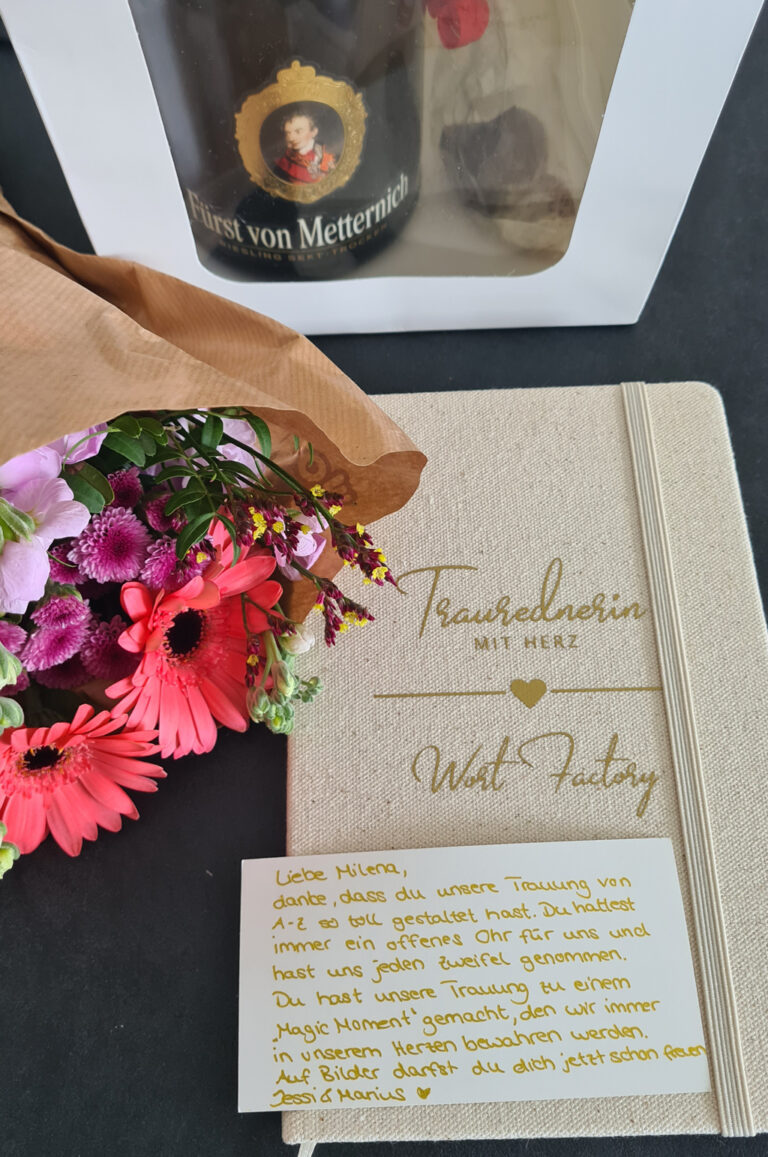 Fürst von Metternich
RIESLING SEKT TROCKEN
Traurednerin
MIT HERZ
Wort Factory
Liebe Milena,
danke, dass du unsere Trauung von
A-Z so toll gestaltet hast. Du hattest
immer ein offenes Ohr für uns und
hast uns jeden Zweifel genommen.
Du hast unsere Trauung zu einem
„Magic Moment" gemacht, den wir immer
in unserem Herzen bewahren werden.
Auf Bilder darfst du dich jetzt schon freuen
Jessi & Marius ♥